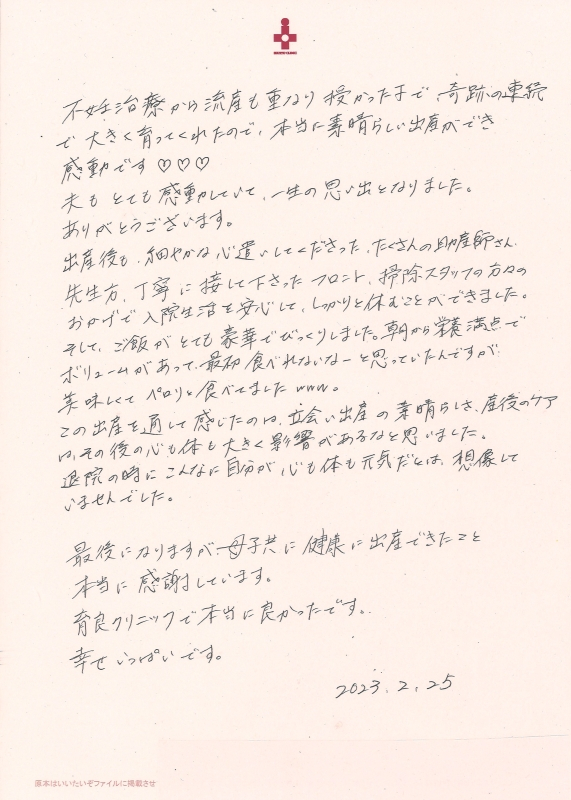 不妊治療から流産も重なり授かった子で、奇跡の連続
で大きく育ってくれたので、本当に素晴らしい出産ができ
感動です♡♡♡
夫もとても感動していて、一生の思い出となりました。
ありがとうございます。
出産後も、細やかな心遣いしてくださった、たくさんの助産師さん、
先生方、丁寧に接して下さったフロント、掃除スタッフの方々の
おかげで入院生活を安心して、しっかりと休むことができました。
そして、ご飯がとても豪華でびっくりしました。朝から栄養満点で
ボリュームがあって、最初食べれないなーと思っていたんですが
美味しくてペロリと食べてましたwww。
この出産を通して感じたのは、立会い出産の素晴らしさ、産後のケア
は、その後の心も体も大きく影響があるなと思いました。
退院の時にこんなに自分が、心も体も元気だとは、想像して
いませんでした。
最後になりますが母子共に健康に出産できたこと
本当に感謝しています。
育良クリニックで本当に良かったです。
幸せいっぱいです。
2023.2.25
原本はいいたいぞファイルに掲載させ